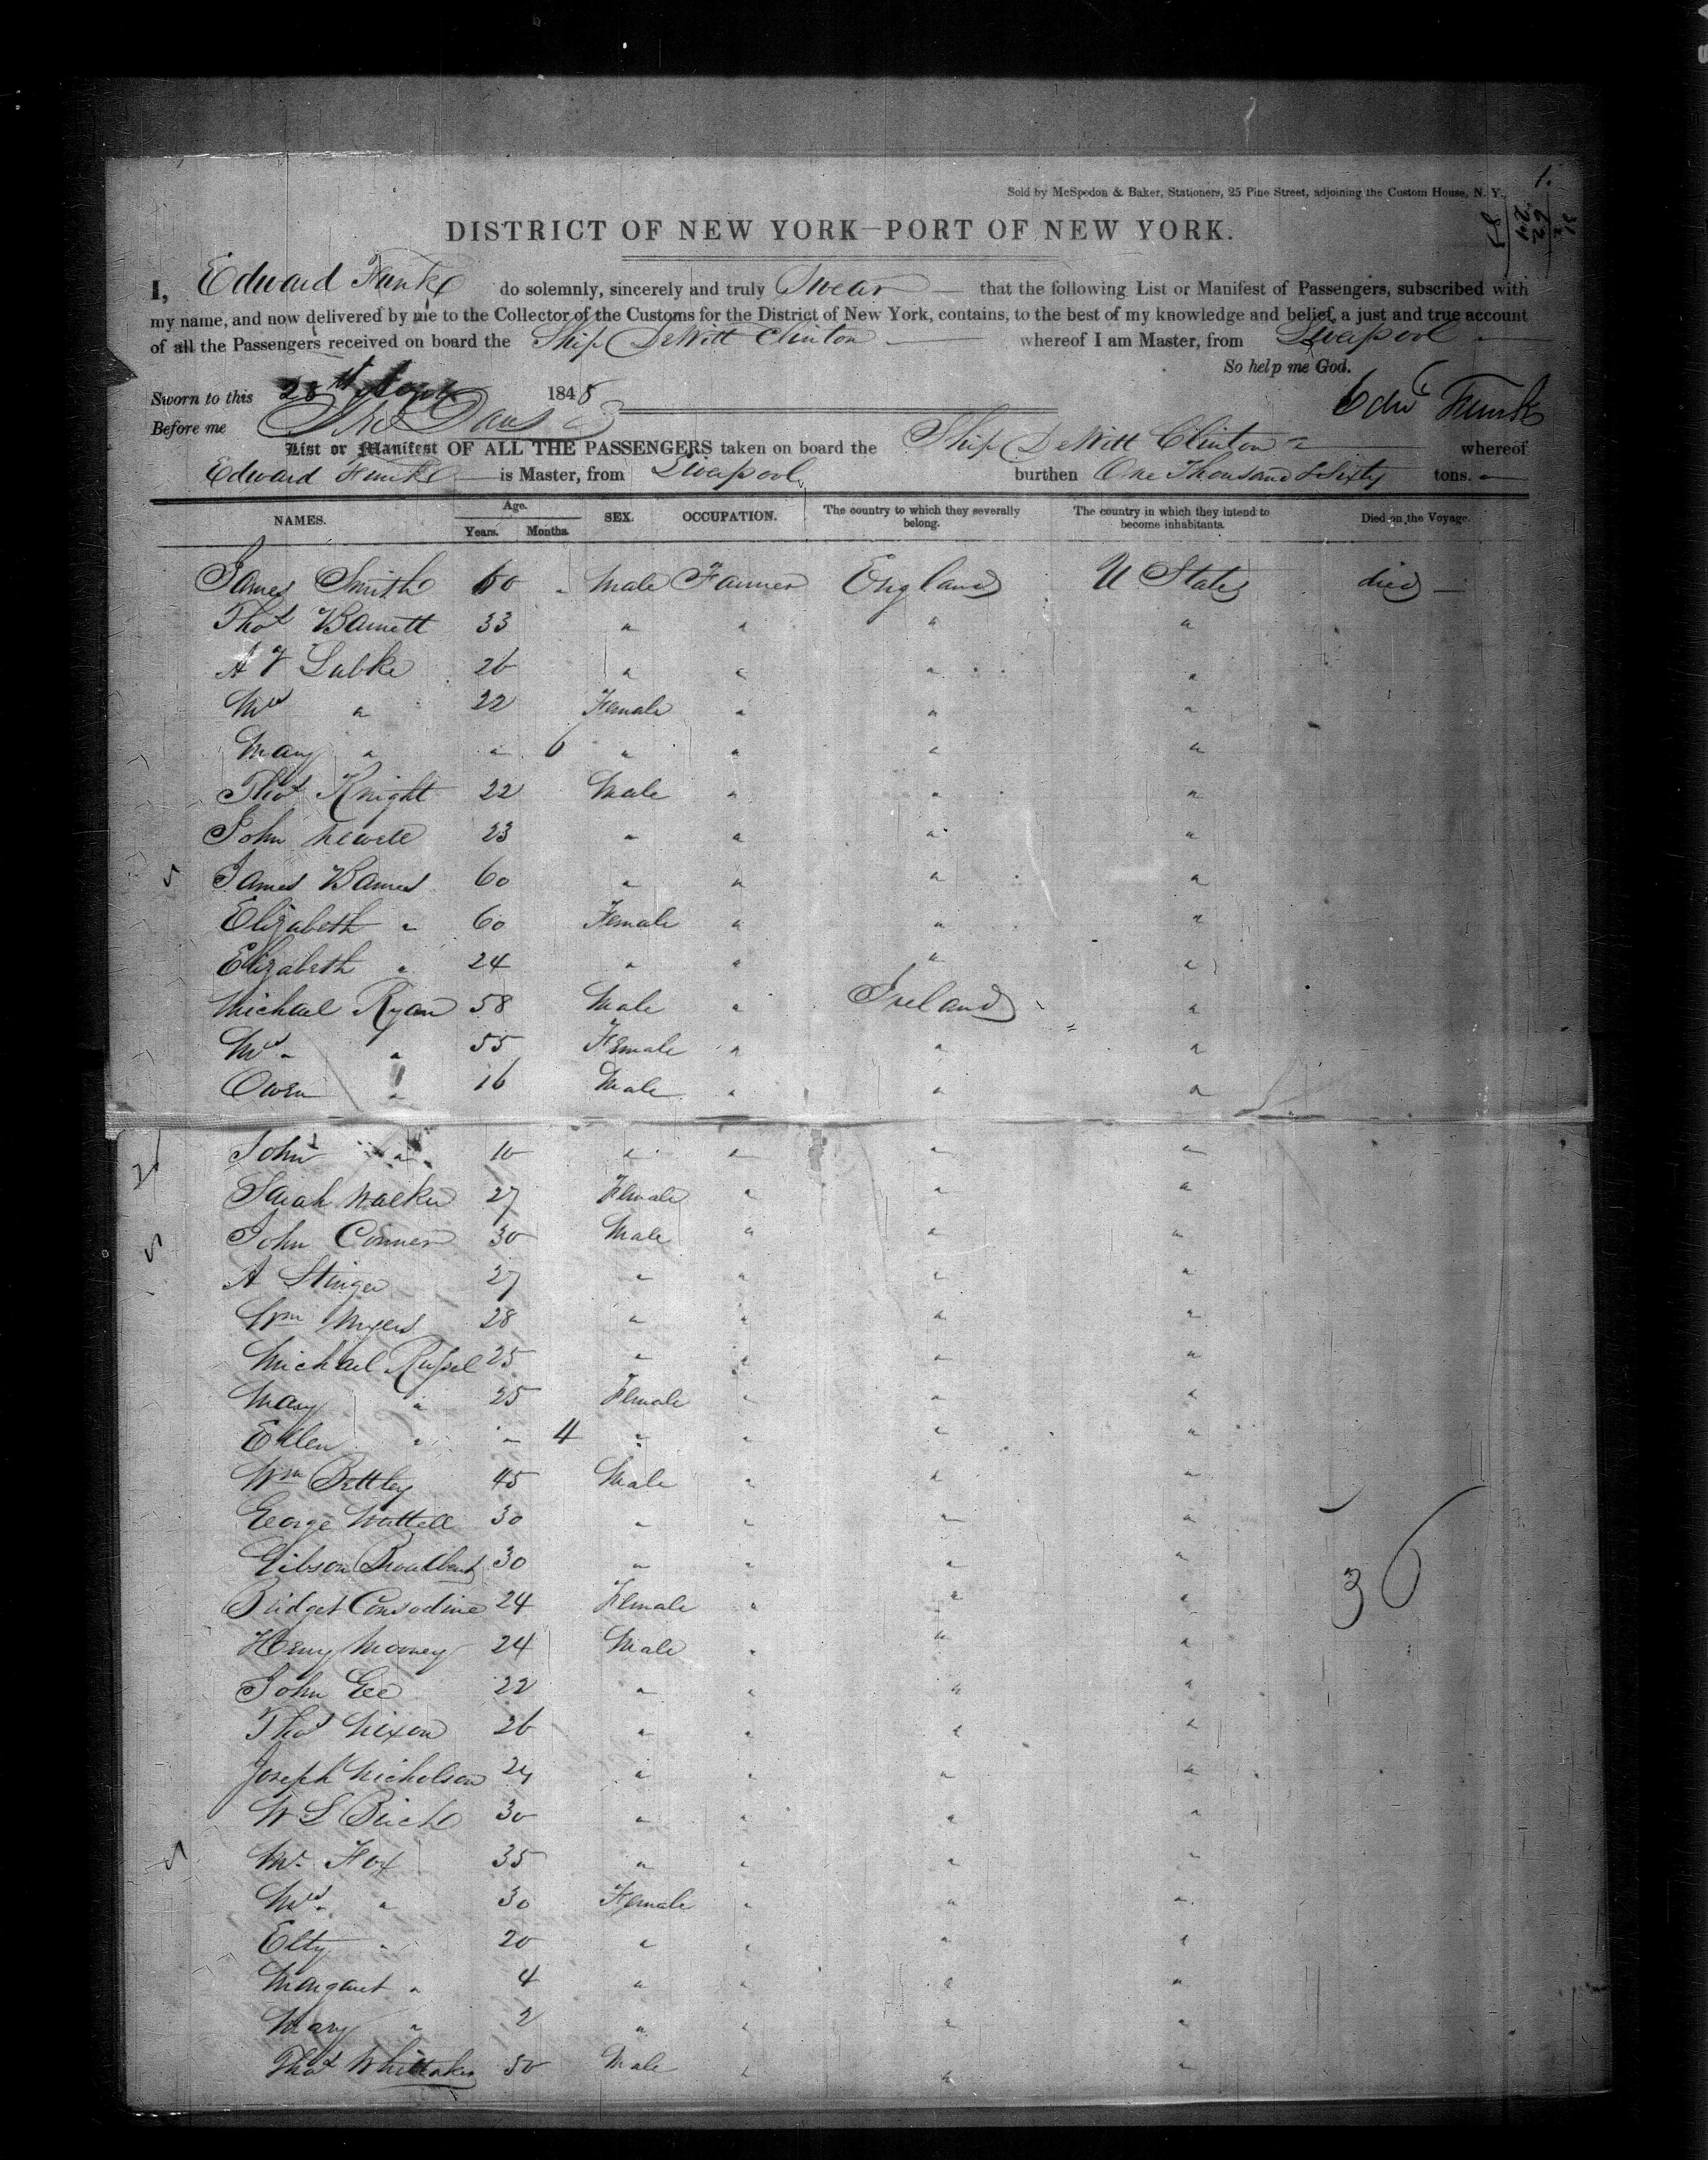 1.
Sold by McSpedon & Baker, Stationers, 25 Pine Street, adjoining the Custom House, N. Y.
DISTRICT OF NEW YORK—PORT OF NEW YORK.
I, Edward Funke do solemnly, sincerely and truly Swear that the following List or Manifest of Passengers, subscribed with
my name, and now delivered by me to the Collector of the Customs for the District of New York, contains, to the best of my knowledge and belief, a just and true account
of all the Passengers received on board the Ship DeWitt Clinton whereof I am Master, from Liverpool
So help me God.
Sworn to this 28th 1848
Edwd Funke
Before me
List or Manifest OF ALL THE PASSENGERS taken on board the Ship DeWitt Clinton whereof
Edward Funke is Master, from Liverpool, burthen One Thousand & Sixty tons.
NAMES. Age. Years. Months. SEX. OCCUPATION. The country to which they severally belong. The country in which they intend to become inhabitants. Died on the Voyage.
James Smith 60 Male Farmer England U States died
Thos Barnett 33 " " " "
A F Lubke 26 " " " "
Mrs " 22 Female " " "
Mary " " 6 " " " "
Thos Knight 22 Male " " "
John Newell 23 " " " "
James Barnes 60 " " " "
Elizabeth " 60 Female " " "
Elizabeth " 24 " " " "
Michael Ryan 58 Male " Ireland "
Mrs " 55 Female " " "
Owen " 16 Male " " "
John " 10 " " " "
Sarah Walker 27 Female " " "
John Conner 30 Male " " "
A Stinger 27 " " " "
Wm Myers 28 " " " "
Michael Russel 25 " " " "
Mary " 25 Female " " "
Ellen " " 4 " " " "
Wm Bettley 45 Male " " "
George 30 " " " "
Gibson Broadbent 30 " " " "
Bridget Consodine 24 Female " " "
Henry Mooney 24 Male " " "
John Gee 22 " " " "
Thos Nixon 26 " " " "
Joseph Nicholson 24 " " " "
W L 30 " " " "
Mr. Fox 35 " " " "
Mrs. " 30 Female " " "
Elty " 20 " " " "
Margaret " 4 " " " "
Mary " 2 " " " "
Thos Whittaker 50 Male " " "
36